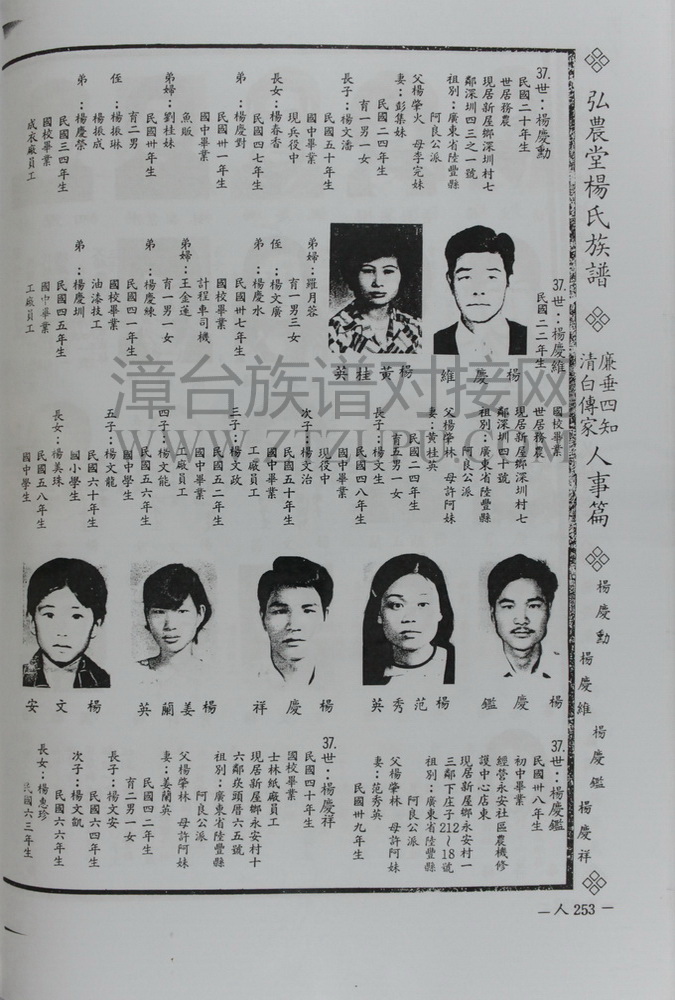 弘農堂楊氏族譜
廉垂四知
清白傳家
人事篇
楊慶勳
楊慶維
楊慶鑑
楊慶祥
37.世：楊慶勳
民國二十年生
世居務農
現居新屋鄉深圳村七
鄰深圳四三之一號
祖別：廣東省陸豐縣
阿良公派
父楊華火 母李完妹
妻：彭集妹
民國二四年生
育一男一女
長子：楊文潘
民國五十年生
國中畢業
現兵役中
長女：楊春香
民國四七年生
弟：楊慶對
民國卅一年生
國中畢業
魚販
弟婦：劉桂妹
民國卅年生
育二男
侄：楊振琳
楊振成
弟：楊慶榮
民國三四年生
國校畢業
成衣廠員工
弟婦：羅月蓉
育一男三女
侄：楊文廣
弟：楊慶水
民國卅七年生
國校畢業
計程車司機
弟婦：王金蓮
育一男一女
弟：楊慶練
民國四一年生
國校畢業
油漆技工
弟：楊慶圳
民國四五年生
國中畢業
工廠員工
37.世：楊慶維
民國二二年生
楊慶維
楊黃桂英
國校畢業
世居務農
現居新屋鄉深圳村七
鄰深圳四十號
祖別：廣東省陸豐縣
阿良公派
父楊榮林 母許阿妹
妻：黃桂英
民國二四年生
育五男一女
長子：楊文生
民國四八年生
國中畢業
現役中
次子：楊文治
民國五十年生
國中畢業
工廠員工
三子：楊文政
民國五二年生
國中畢業
工廠員工
四子：楊文能
民國五六年生
國中學生
五子：楊文龍
民國六十年生
國小學生
長女：楊美珠
民國五八年生
國中學生
楊慶鑑
楊范秀英
楊慶祥
楊姜蘭英
楊文安
37.世：楊慶鑑
民國卅八年生
初中畢業
經營永安社區農機修
護中心店東
現居新屋鄉永安村一
三鄰下庄子212～18號
祖別：廣東省陸豐縣
阿良公派
父楊榮林 母許阿妹
妻：范秀英
民國卅九年生
37.世：楊慶祥
民國四十年生
國校畢業
士林紙廠員工
現居新屋鄉永安村十
六鄰庋頭厝六五號
祖別：廣東省陸豐縣
阿良公派
父楊榮林 母許阿妹
妻：姜蘭英
民國四二年生
育二男一女
長子：楊文安
民國六四年生
次子：楊文凱
民國六六年生
長女：楊惠珍
民國六三年生
—人 253—
漳台族谱对接网
WWW.ZTZUPU.COM